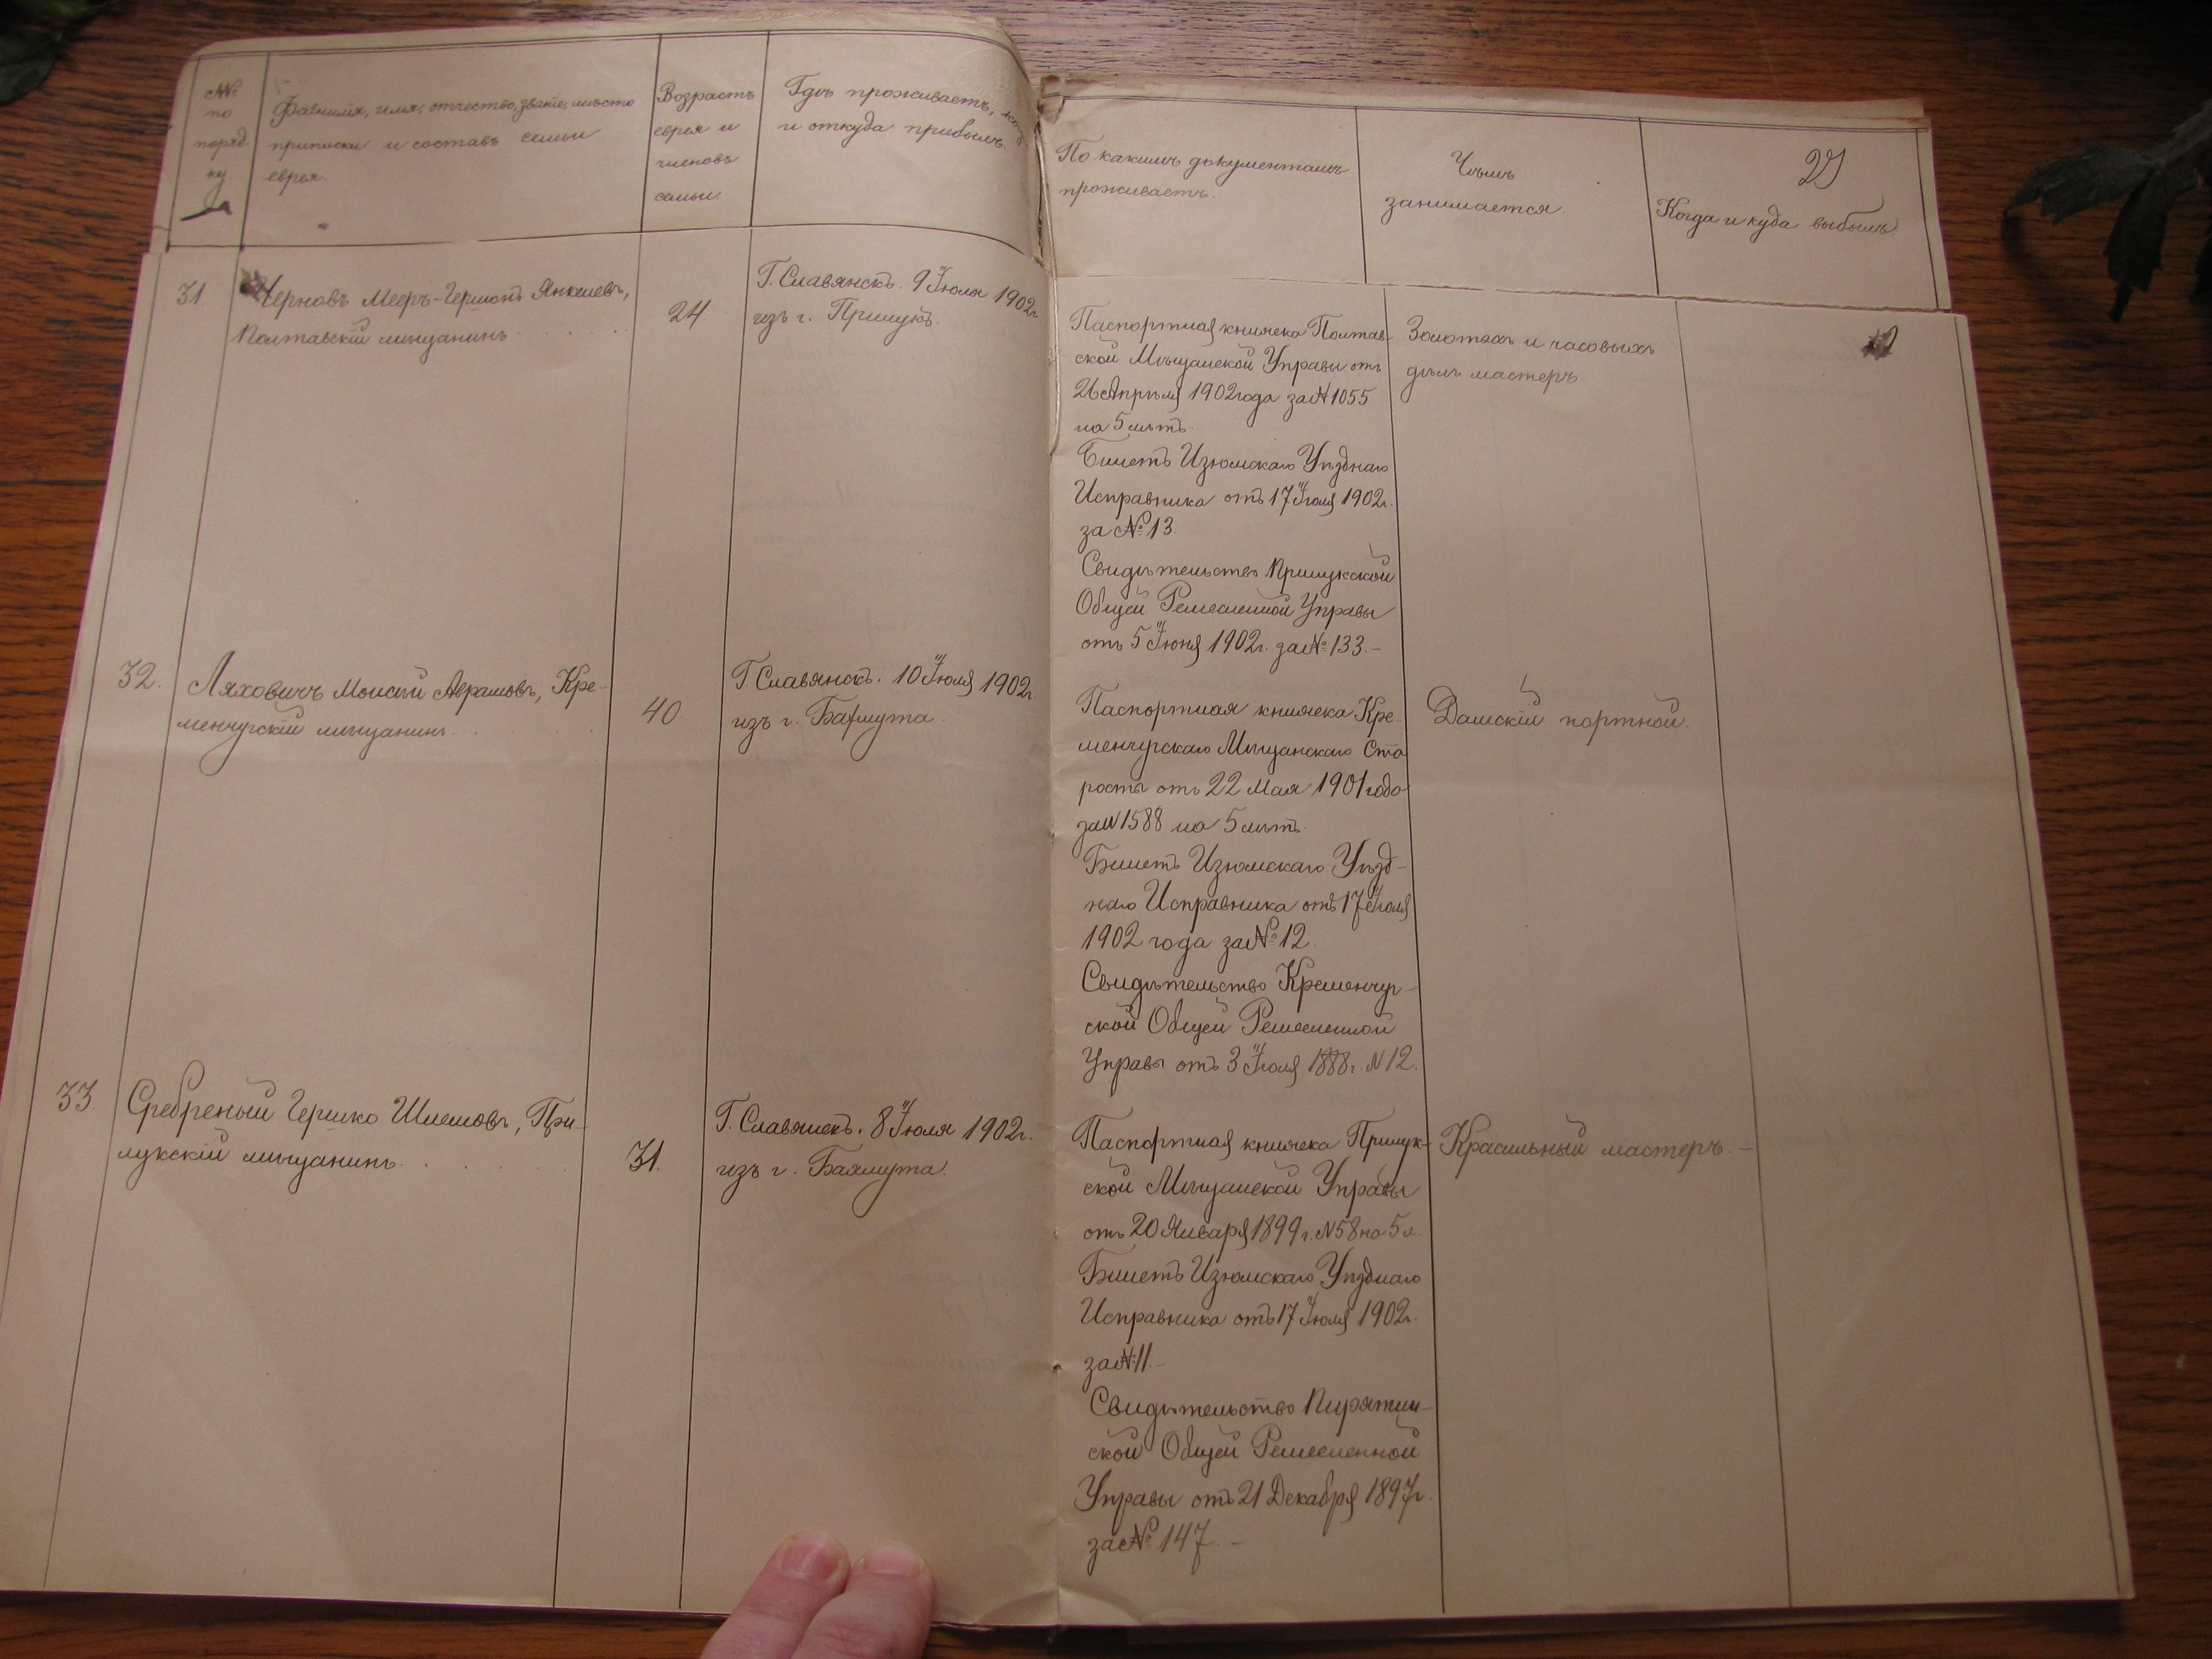 №№
по
поряд-
ку
Фамилія, имя, отчество, званіе, мѣсто
приписки и составъ семьи
еврея.
Возрастъ
еврея и
членовъ
семьи.
Гдѣ проживаетъ,
и откуда прибылъ.
По какимъ документамъ
проживаетъ.
Чѣмъ
занимается.
Когда и куда выбылъ
31
Черновъ Мееръ-Гершонъ Янкелевъ,
Полтавскій мѣщанинъ
24
Г. Славянскъ. 9 Іюля 1902г
изъ г. Прилукъ.
Паспортная книжка Полтав-
ской Мѣщанской Управы отъ
26 Апрѣля 1902 года за № 1055
на 5 лѣтъ.
Билетъ Изюмскаго Уѣзднаго
Исправника отъ 17 Іюля 1902г.
за № 13.
Свидѣтельство Прилукской
Общей Ремесленной Управы
отъ 5 Іюня 1902г. за № 133.-
Золотыхъ и часовыхъ
дѣлъ мастеръ.
32.
Ляховичъ Моисѣй Абрамовъ, Кре-
менчугскій мѣщанинъ
40
Г. Славянскъ. 10 Іюля 1902г.
изъ г. Бахмута
Паспортная книжка Кре-
менчугскаго Мѣщанскаго Ста
росты отъ 22 Мая 1901 года
за № 1588 на 5 лѣтъ.
Билетъ Изюмскаго Уѣзд-
наго Исправника отъ 17 Іюля
1902 года за № 12.
Свидѣтельство Кременчуг-
ской Общей Ремесленной
Управы отъ 3 Іюля 1888г. № 12.
Дамскій портной.
33
Сребреный Гершко Шлемовъ, При-
лукскій мѣщанинъ
31.
Г. Славянскъ. 8 Іюля 1902г.
изъ г. Бахмута.
Паспортная книжка Прилук-
ской Мѣщанской Управы
отъ 20 Января 1899г. № 58 на 5 л.
Билетъ Изюмскаго Уѣзднаго
Исправника отъ 17 Іюля 1902г.
за № 11.-
Свидѣтельство Пирятин-
ской Общей Ремесленной
Управы отъ 21 Декабря 1897г.
за № 147.-
Красильный мастеръ.-